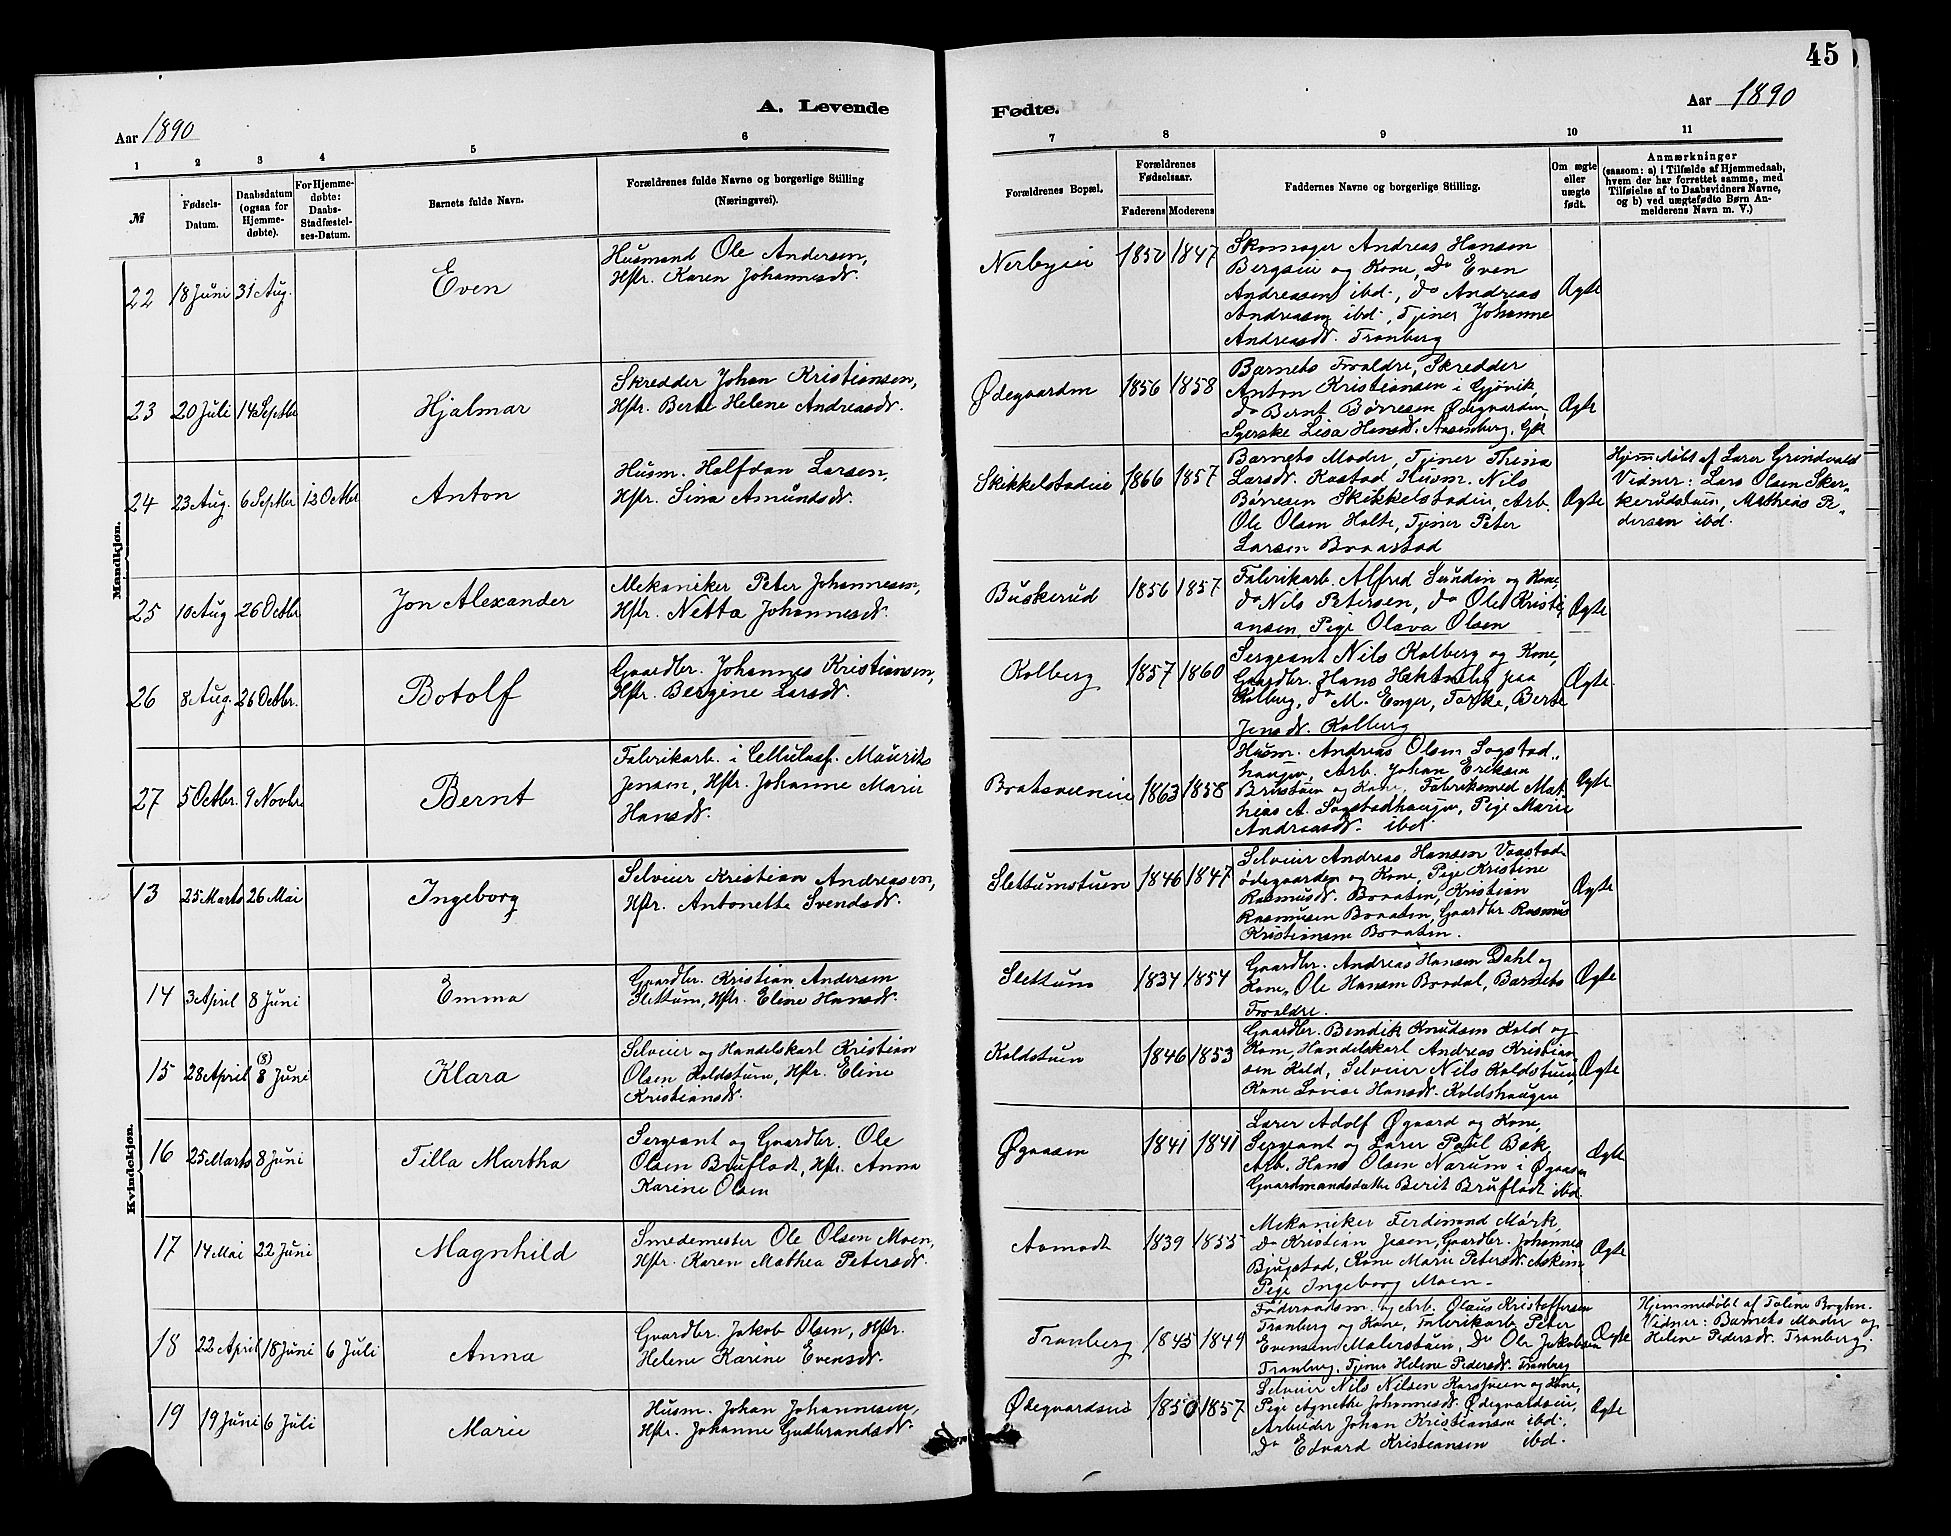 45
A. Levende
Fødte.
Aar 1890
Aar 1890
1 2 3 4 5 6
7 8 9 10 11
№
Fødsels-
Datum.
Daabsdatum
(ogsaa for
Hjemme-
døbte).
For Hjemme-
døbte:
Daabs-
Stadfæstel-
ses-Datum.
Barnets fulde Navn.
Forældrenes fulde Navne og borgerlige Stilling
(Næringsvei).
Forældrenes Bopæl.
Forældrenes
Fødselsaar.
Faderens Moderens
Faddernes Navne og borgerlige Stilling.
Om ægte
eller
uægte
født.
Anmærkninger
(saasom: a) i Tilfælde af Hjemmedaab,
hvem der har forrettet samme, med
Tilføielse af to Daabsvidners Navne,
og b) ved uægtefødte Børn An-
melderens Navn m. V.)
Mandkjøn.
22 18 Juni 31 Aug. Even
Husmand Ole Andersen,
Hstr. Karen Johannesdr.
Nerbyeie 1850 1847
Skomager Andreas Hansen
Bergseie og Kone, Do Even
Andreassen ibd., do Andreas
Andreasen ibd., Tjener Johanne
Andreasdr. Tranberg
Ægte
23 20 Juli 14 Septbr Hjalmar
Skredder Johan Kristiansen,
Hstr. Berte Helene Andreasdr.
Ødegaarden 1856 1858
Barnets Forældre, Skredder
Anton Kristiansen i Gjövik,
do Bernt Børresen Ødegaarden,
Syerske Lisa Hansdr. Aasenberg, Gjk
Ægte
24 23 Aug. 6 Septbr 12 Octbr Anton
Husm. Halfdan Larsen,
Hstr. Sina Amundsdr.
Skikkelstadeie 1866 1857
Barnets Moder, Tjener Thina
Larsdr. Kastad, Husm. Nils
Børresen Skikkelstadeie, Arb.
Ole Olsen Holte, Tjener Peter
Larsen Braastad
Ægte
Hjemmedøbt af Lærer Grindvold
Vidner: Lars Olsen Sker-
kerudstuen, Mathias Pe-
dersen ibd.
25 10 Aug 26 Octbr Jon Alexander
Mekaniker Peter Johannesen,
Hstr. Netta Johannesdr.
Buskerud 1856 1857
Fabrikarb. Alfred Sundin og Kone
do Nils Petersen, do Ole Kristi-
ansen, Pige Olava Olsen
Ægte
26 8 Aug. 26 Octbr. Botolf
Gaardbr. Johannes Kristiansen,
Hstr. Bergine Larsdr.
Kolberg 1857 1860
Sergeant Nils Kolberg og Kone,
Gaardbr. Hans Hekshelby paa
Kolberg, do M. Enger, Toske, Berte
Jensdr. Kolberg
Ægte.
27 5 Octbr. 9 Novbr Bernt
Fabrikarb. i Cellulosf. Maurits
Jensen, Hstr. Johanne Marie
Hansdr.
Bratsveeneie 1863 1858
Husm. Andreas Olsen Sogstad-
haugen, Arb. Johan Eriksen
Brustuen og Kone, Fabriksmed Mat-
hias A. Sogstadhaugen, Pige Marie
Andreasdr. ibd.
Ægte
Kvindekjøn.
13 25 Marts 26 Mai Ingeborg
Selveier Kristian Andreasen,
Hstr. Antonette Svendsdr.
Slettumstuen 1846 1847
Selveier Andreas Hansen Vaastad-
ødegaarden og Kone, Pige Kristine
Rasmusdr. Braaten, Kristian
Rasmusen Braaten, Gaardbr. Rasmus
Kristiansen Braaten.
Ægte
14 3 April 8 Juni Emma
Gaardbr. Kristian Andersen
Slettum, Hstr. Eline Hansdr.
Slettum 1834 1854
Gaardbr. Andreas Hansen Dahl og
Kone, Ole Hansen Brodal, Barnets
Forældre.
Ægte
15 28 April (8) 8 Juni Klara
Selveier og Handelskarl Kristian
Olsen Koldstuen, Hstr. Eline
Kristiansdr.
Koldstuen 1846 1853
Gaardbr. Bendik Knudsen Kold og
Kone, Handelskarl Andreas Kristian-
sen Kold, Selveier Nils Koldstuen,
Kone Lovise Hansdr. Koldshaugen
Ægte
16 25 Marts 8 Juni Tilla Martha
Sergeant og Gaardbr. Ole
Olsen Bruflodt, Hstr. Anna
Karine Olsen
Øgaasen 1841 1841
Lærer Adolf Øgaard og Kone,
Sergeant og Lærer Paul Bæk,
Arb. Hans Olsen Narum i Øgaasen
Gaardmandsdatter Berit Bruflodt ibd.
Ægte
17 14 Mai 22 Juni Magnhild
Smedemester Ole Olsen Moen,
Hstr. Karen Mathea Petersdr.
Aamodt 1839 1855
Mekaniker Ferdinand Mørk,
Do Kristian Jesen, Gaardbr. Johannes
Bjugstad, Kone Marie Petersdr. Askim
Pige Ingeborg Moen.
Ægte
18 22 April 18 Juni 6 Juli Anna
Gaardbr. Jakob Olsen, Hstr.
Helene Karine Evensdr.
Tranberg 1845 1849
Føderaadsm. og Arb. Olaus Kristoffersen
Tranberg og Kone, Fabrikarb. Peter
Evensen Malerstuen, Do Ole Jakobsen
Tranberg, Tjener Helene Pedersdr. Tranberg
Ægte
Hjemmedøbt af Taline Bøghn.
Vidner: Barnets Moder og
Helene Pedersdr. Tranberg.
19 19 Juni 6 Juli Marie
Husm. Johan Johannesen,
Hstr. Johanne Gudbrandsdr.
Ødegaardseie 1850 1857
Selveier Nils Nilsen Karsveen og Kone,
Pige Agnethe Johannesdr. Ødegaardseie,
Arbeider Johan Kristiansen ibd.
Do Edvard Kristiansen ibd.
Ægte